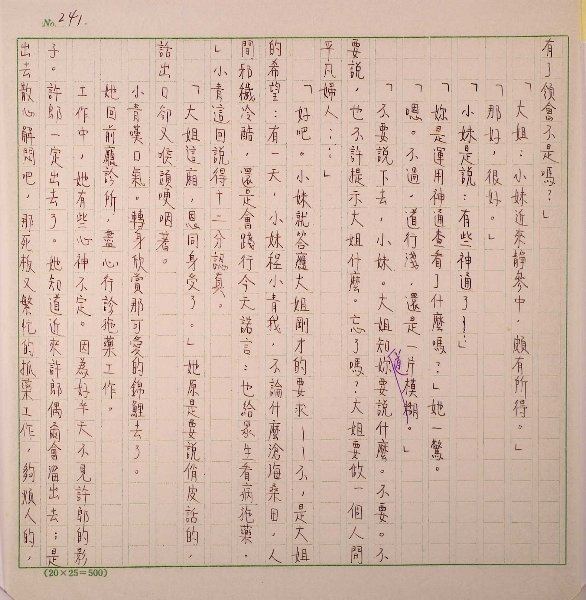 No. 241.
有了領會不是嗎？」
「大姐：小妹近來靜參中，頗有所得。」
「那好，很好。」
「小妹是說：有些神通了！」
「妳是運用神通查看了什麼嗎？」她一驚。
「嗯。不過，道行淺，還是一片模糊。」
「不要說下去，小妹。大姐知道妳要說什麼。不要。不
要說，也不許提示大姐什麼。忘了嗎？大姐要做一個人間
平凡婦人……」
「好吧。小妹就答應大姐剛才的要求——不，是大姐
的希望：有一天，小妹程小青我，不論什麼滄海桑田，人
間邪穢冷酷，還是會踐行今天諾言：也給眾生看病施藥。
」小青這回說得十二分認真。
「大姐這廂，恩同身受了。」她原是要說俏皮話的，
話出口卻又喉頭哽咽著。
小青嘆口氣。轉身欣賞那可愛的錦鯉去了。
她回前廳診所，盡心行診施藥工作。
工作中，她有些心神不定。因為好半天不見許郎的影
子。許郎一定出去了。她知道近來許郎偶爾會溜出去：是
出去散心解悶吧，那死板又繁忙的抓藥工作，夠煩人的，
(20×25=500)